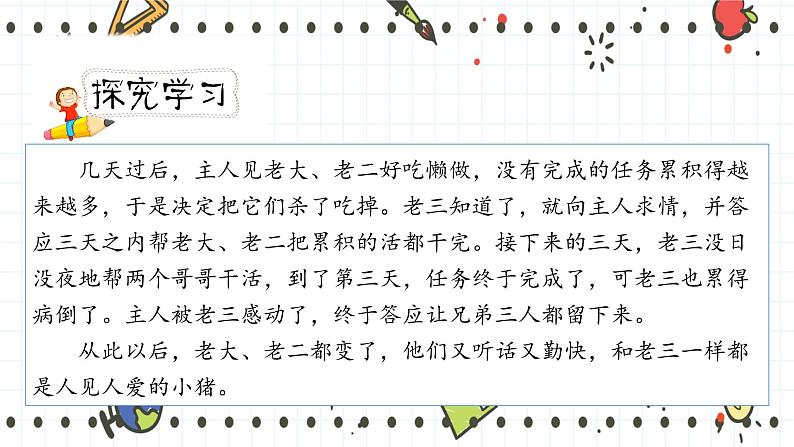 探究学习
几天过后，主人见老大、老二好吃懒做，没有完成的任务累积得越
来越多，于是决定把它们杀了吃掉。老三知道了，就向主人求情，并答
应三天之内帮老大、老二把累积的活都干完。接下来的三天，老三没日
没夜地帮两个哥哥干活，到了第三天，任务终于完成了，可老三也累得
病倒了。主人被老三感动了，终于答应让兄弟三人都留下来。
从此以后，老大、老二都变了，他们又听话又勤快，和老三一样都
是人见人爱的小猪。